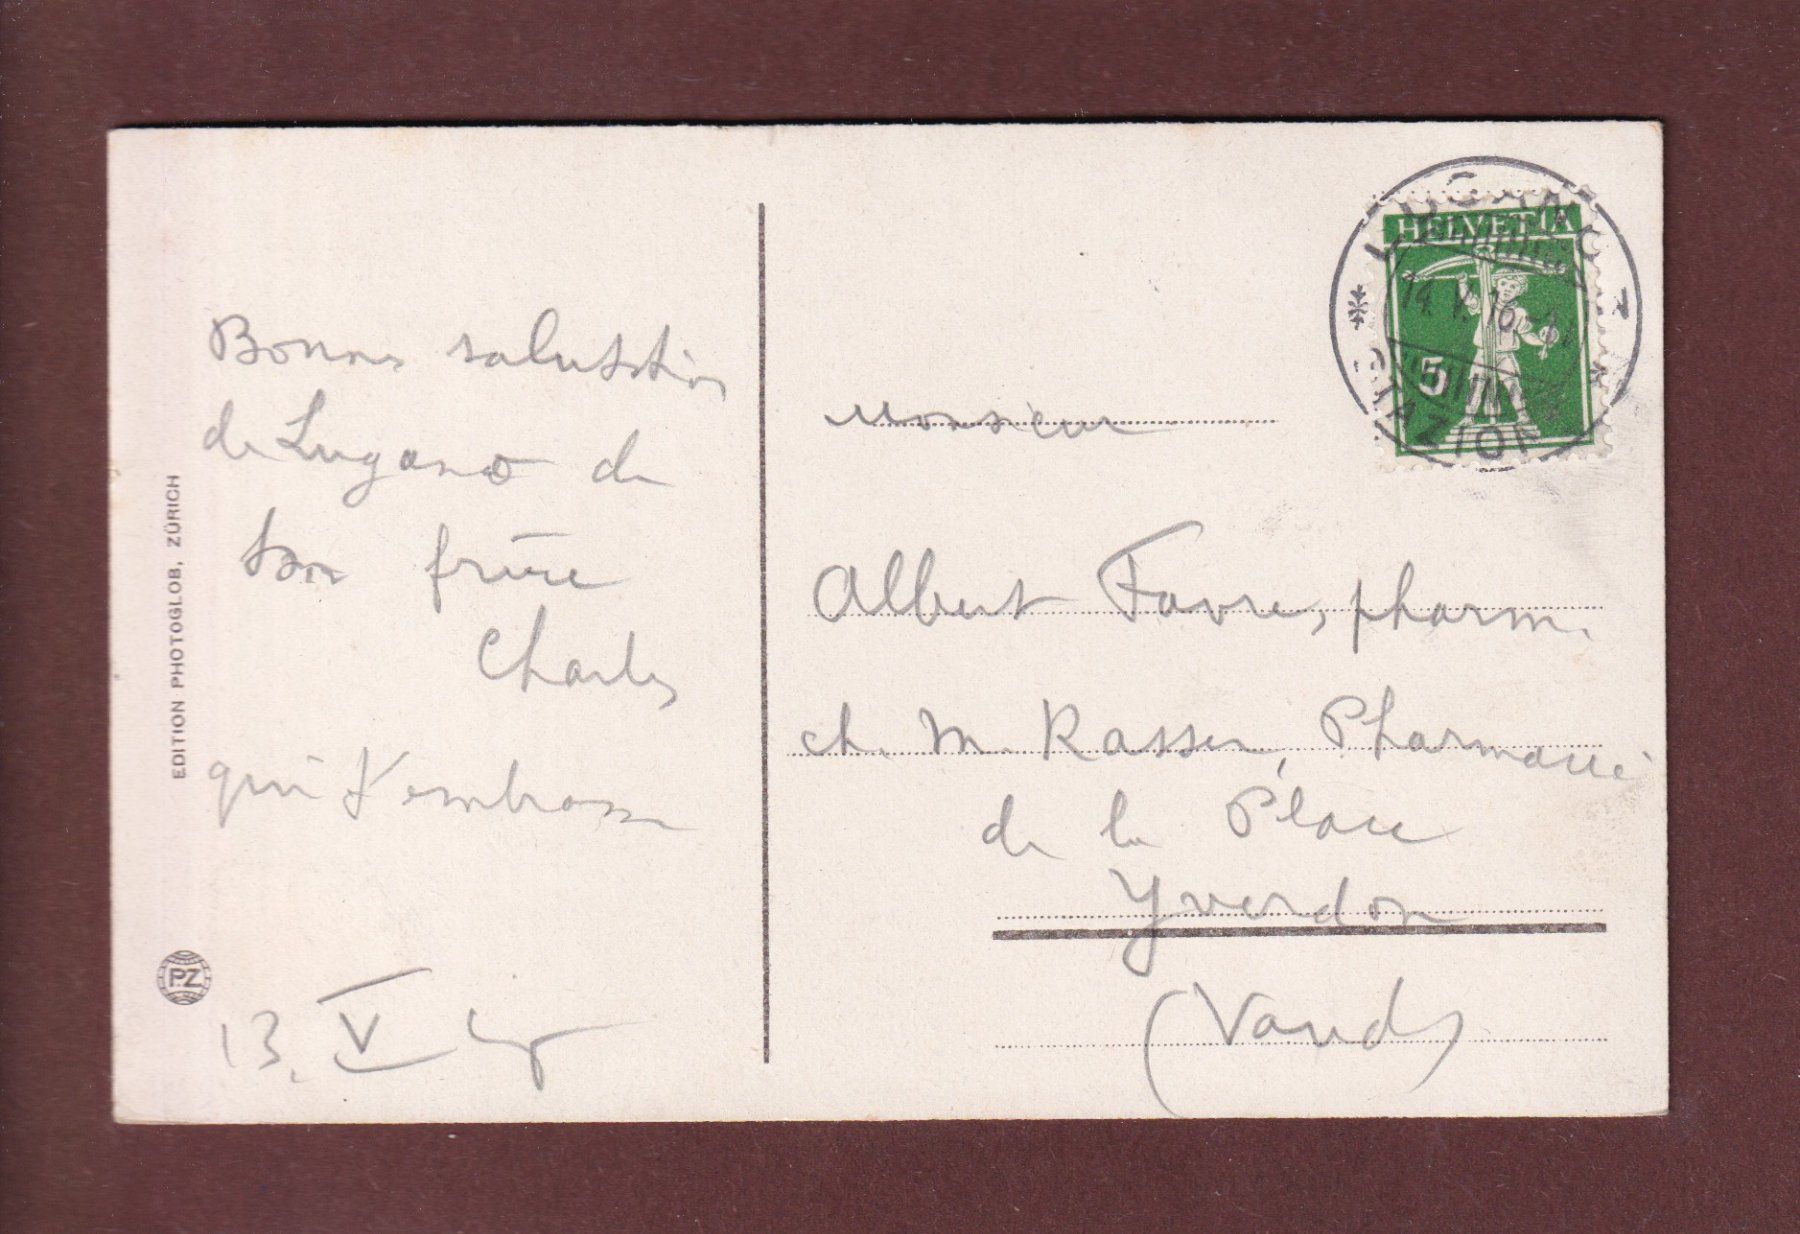 EDITION PHOTOGLOB, ZÜRICH
PZ
Bonnes salutations
de Lugano de
ton frère
Charles
qui t'embrasse
13. V
HELVETIA
5
LUGANO 1
14. V. 16.
STAZIONE
Monsieur
Albert Favre, pharm.
ch. M. Kasser, Pharmacie
de la Place
Yverdon
(Vaud)